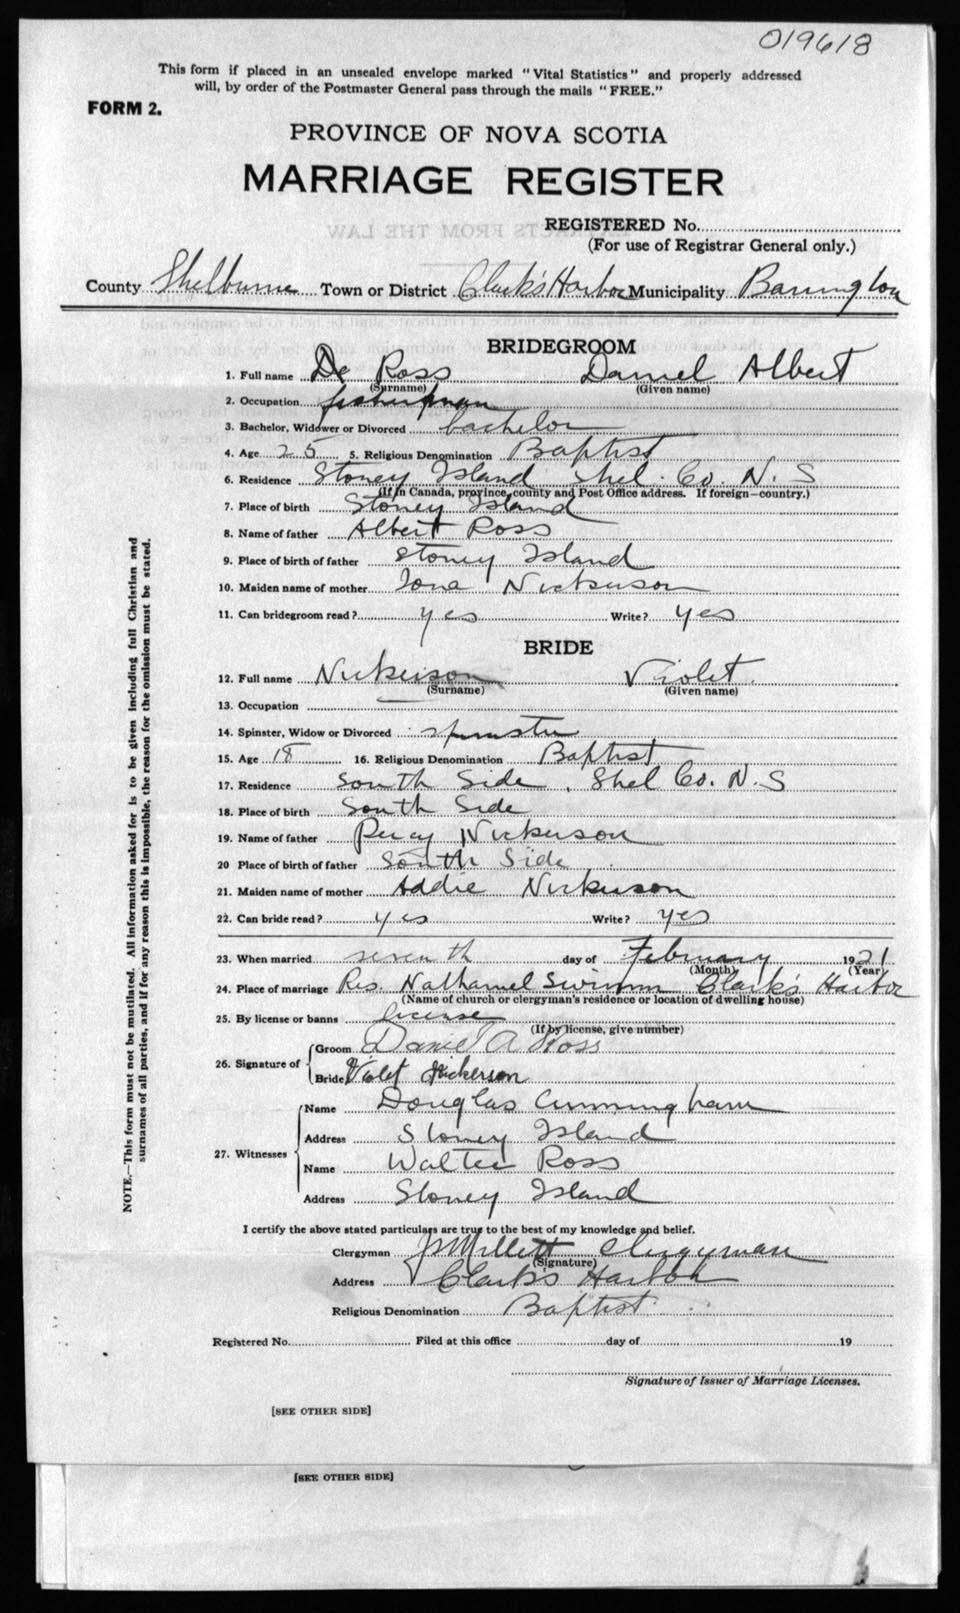 019618
This form if placed in an unsealed envelope marked "Vital Statistics" and properly addressed
will, by order of the Postmaster General pass through the mails "FREE."
FORM 2.
PROVINCE OF NOVA SCOTIA
MARRIAGE REGISTER
REGISTERED No.
(For use of Registrar General only.)
County Shelburne Town or District Clark's Harbor Municipality Barrington
BRIDEGROOM
1. Full name De Ross Daniel Albert
(Surname) (Given name)
2. Occupation fisherman
3. Bachelor, Widower or Divorced bachelor
4. Age 25 5. Religious Denomination Baptist
6. Residence Stoney Island Shel. Co. N. S
(If in Canada, province, county and Post Office address. If foreign—country.)
7. Place of birth Stoney Island
8. Name of father Albert Ross
9. Place of birth of father Stoney Island
10. Maiden name of mother Ione Nickerson
11. Can bridegroom read? yes Write? yes
BRIDE
12. Full name Nickerson Violet
(Surname) (Given name)
13. Occupation
14. Spinster, Widow or Divorced spinster
15. Age 18 16. Religious Denomination Baptist
17. Residence South Side, Shel Co. N. S
18. Place of birth South Side
19. Name of father Percy Nickerson
20 Place of birth of father South Side
21. Maiden name of mother Addie Nickerson
22. Can bride read? yes Write? yes
23. When married seventh day of February 1921
(Month) (Year)
24. Place of marriage Res. Nathaniel Swimm Clark's Harbor
(Name of church or clergyman's residence or location of dwelling house)
25. By license or banns license
(If by license, give number)
26. Signature of Groom Daniel A Ross
Bride Violet Nickerson
27. Witnesses
Name Douglas Cunningham
Address Stoney Island
Name Walter Ross
Address Stoney Island
I certify the above stated particulars are true to the best of my knowledge and belief.
Clergyman Millett Clergyman
(Signature)
Address Clark's Harbor
Religious Denomination Baptist
Registered No. Filed at this office day of 19
Signature of Issuer of Marriage Licenses.
[SEE OTHER SIDE]
[SEE OTHER SIDE]
NOTE.—This form must not be mutilated. All information asked for is to be given including full Christian and
surnames of all parties, and if for any reason this is impossible, the reason for the omission must be stated.